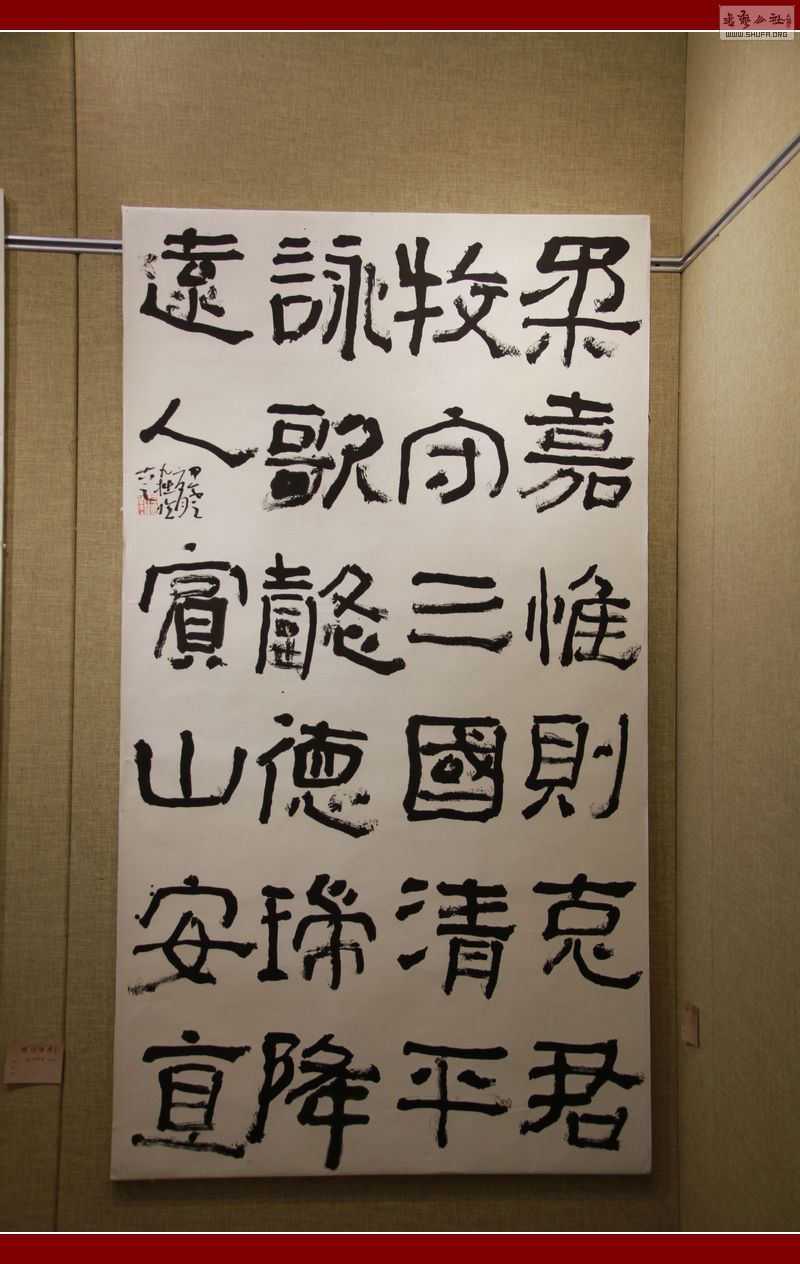 柔嘉惟則克君
牧守三國清平
詠歌懿德瑞降
遠人賓山安直
書藝公社
WWW.SHUFA.ORG